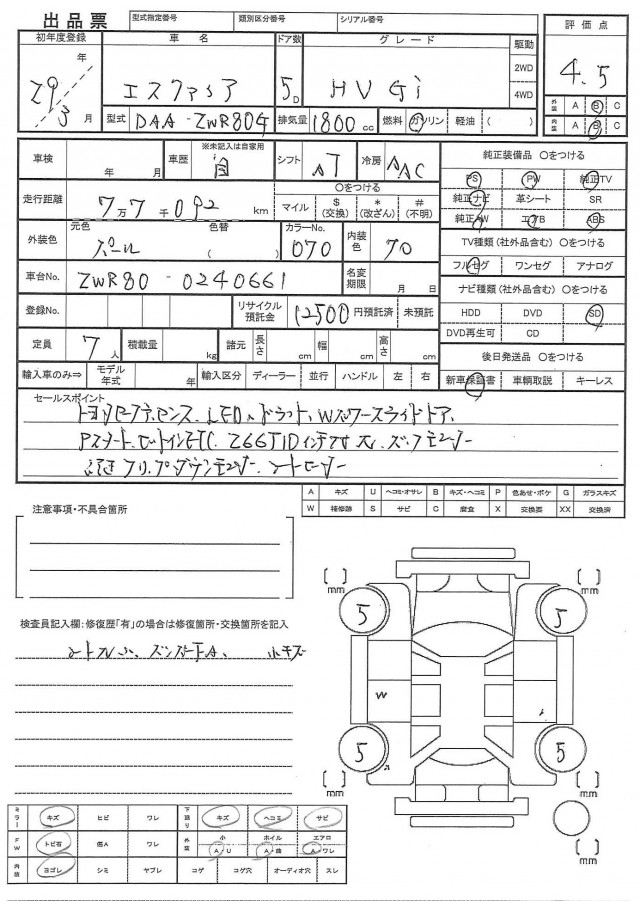 出品票 型式指定番号 類別区分番号 シリアル番号
初年度登録 車名 ドア数 グレード 駆動 評価点
年 2WD
29 / 3 月 エスクァイア 5D HV Gi 4WD 4.5
型式 DAA-ZWR80G 排気量 1800 cc 燃料 ガソリン 軽油 ( )
外装 A B C
内装 A B C
車検 年 月 車歴 ※未記入は自家用 自 シフト AT 冷房 AAC
純正装備品 〇をつける
PS PW 純正TV
純正ナビ 革シート SR
純正AW エアB ABS
走行距離 7万7千092 km
〇をつける
マイル $(交換) *(改ざん) #(不明)
外装色 元色 パール 色替 ( ) カラーNo. 070 内装色 70
TV種類(社外品含む) 〇をつける
フルセグ ワンセグ アナログ
車台No. ZWR80-0240661 名変期限 月 日
ナビ種類(社外品含む) 〇をつける
HDD DVD SD
DVD再生可 CD
登録No. リサイクル預託金 12500 円預託済 未預託
定員 7人 積載量 kg 諸元 長さ cm 幅 cm 高さ cm
後日発送品 〇をつける
新車保証書 車輌取説 キーレス
輸入車のみ⇒ モデル年式 年 輸入区分 ディーラー 並行 ハンドル 左 右
セールスポイント
トヨタセーフティセンス、LED、ドラレコ、Wパワースライドドア、
Pスタート、ビルトインETC、
フリップダウンモニター、シートヒーター
A キズ U ヘコミ・オサレ B キズ・ヘコミ P 色あせ・ボケ G ガラスキズ
W 補修跡 S サビ C 腐食 X 交換要 XX 交換済
注意事項・不具合箇所
検査員記入欄:修復歴「有」の場合は修復箇所・交換箇所を記入
小キズ
[ ]mm [ ]mm
5 5
W
5 5
[ ]mm [ ]mm
[ ]mm
ミラー キズ ヒビ ワレ 下廻り キズ ヘコミ サビ
FW トビ石 傷A ワレ 外装 小 A・U ホイル A・曲 エアロ A・ワレ
内装 ヨゴレ シミ ヤブレ コゲ コゲ穴 オーディオ穴 スレ